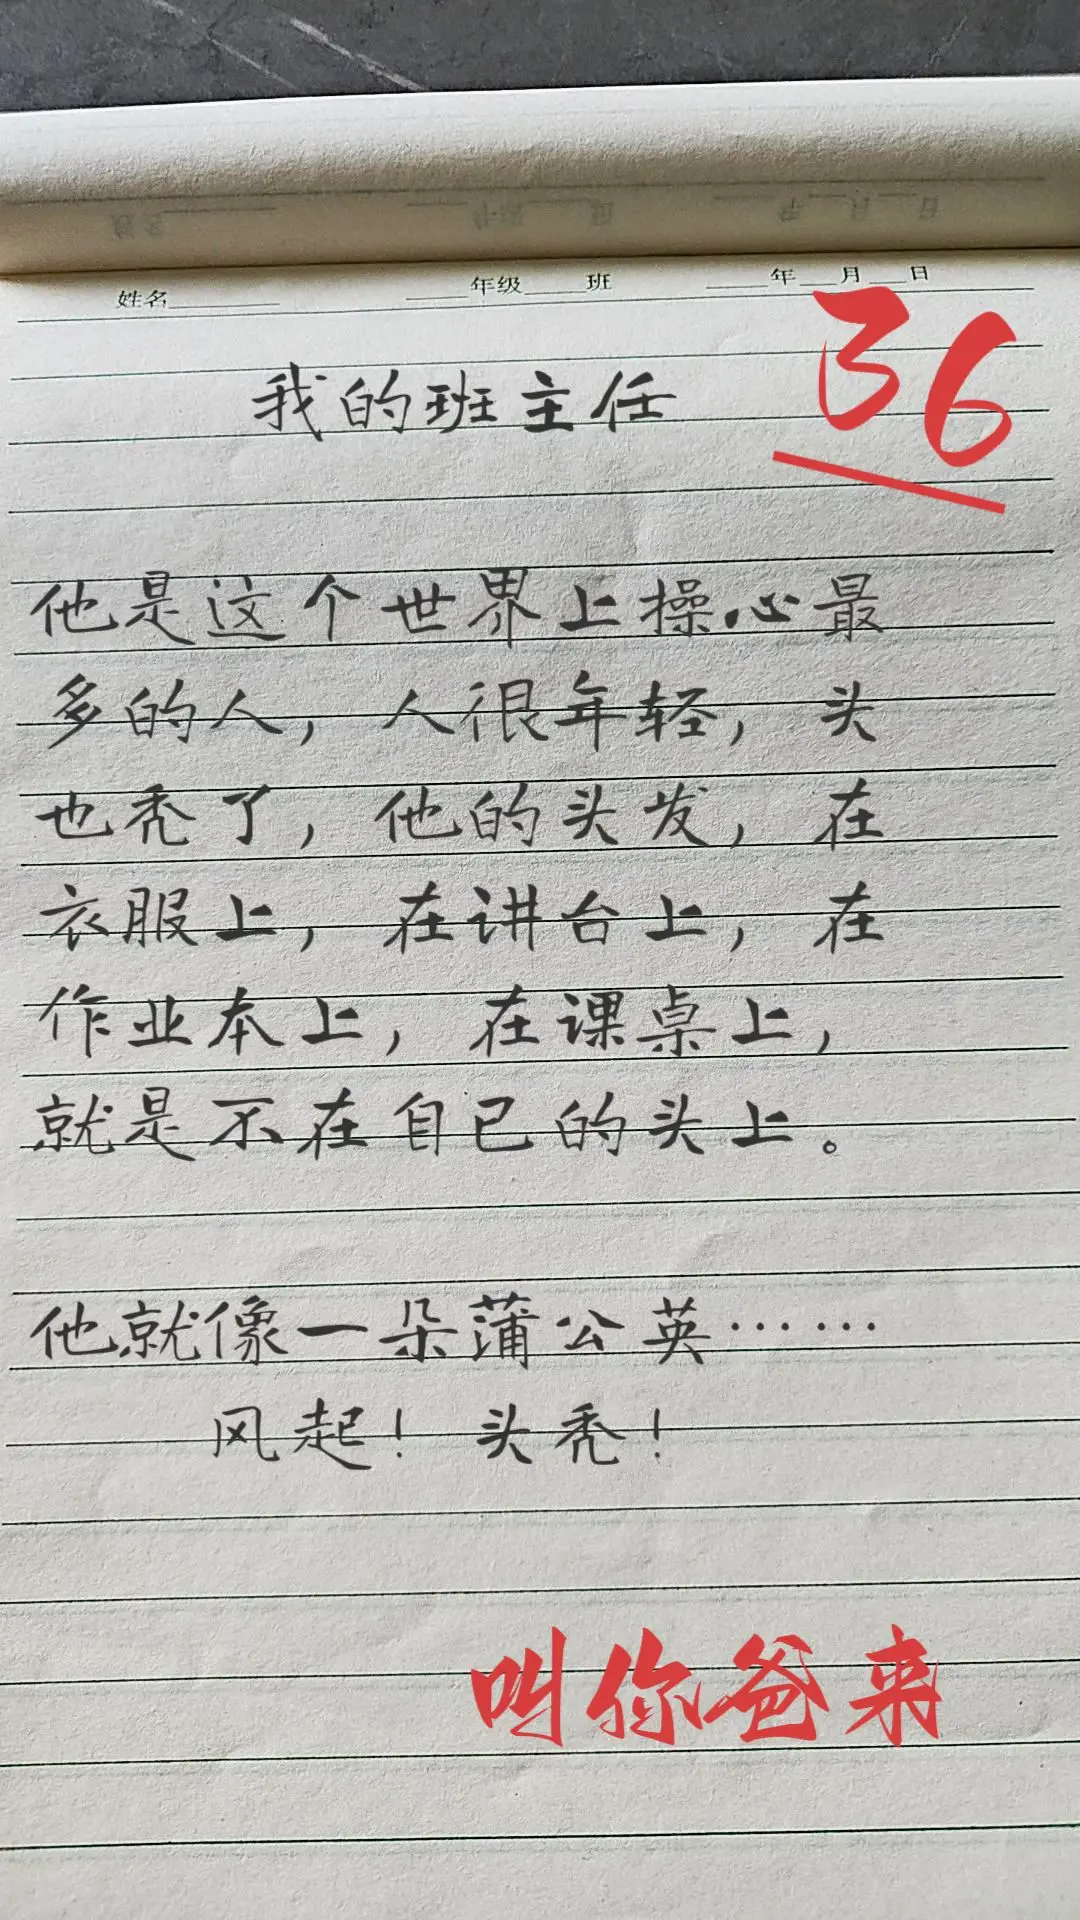 姓名________ ____年级____班 ____年__月__日
36
我的班主任
他是这个世界上操心最
多的人，人很年轻，头
也秃了，他的头发，在
衣服上，在讲台上，在
作业本上，在课桌上，
就是不在自己的头上。
他就像一朵蒲公英……
风起！头秃！
叫你爸来